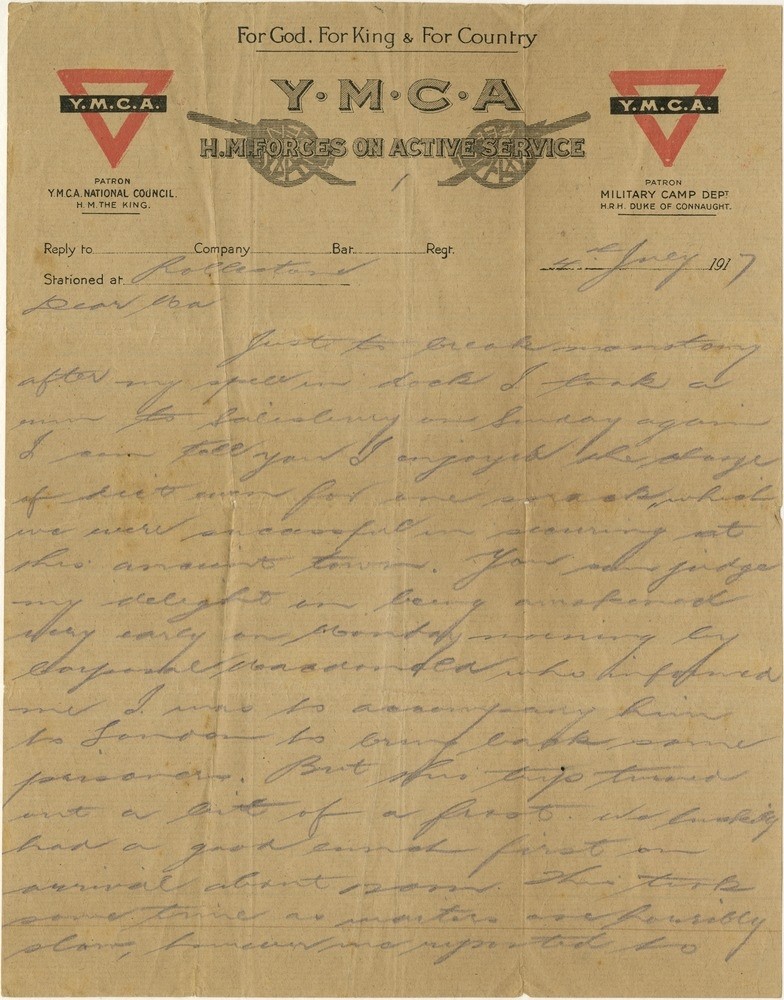 For God. For King & For Country
Y·M·C·A
H.M. FORCES ON ACTIVE SERVICE
Y.M.C.A.
PATRON
Y.M.C.A. NATIONAL COUNCIL.
H.M. THE KING.
Y.M.C.A.
PATRON
MILITARY CAMP DEPT
H.R.H. DUKE OF CONNAUGHT.
Reply to Company Bat. Regt.
Stationed at Rolleston
4th July 1917
Dear Ma
Just to break monotony
after my spell in dock I took a
run to Salisbury on Sunday again
I can tell you I enjoyed the change
of diet even for one snack, which
we were successful in securing at
this ancient town. You can judge
my delight on being awakened
very early on Monday morning by
Corporal Macdonald who informed
me I was to accompany him
to London to bring back some
prisoners. But this trip turned
out a bit of a frost. We luckily
had a good lunch first on
arrival about noon. This took
some time as waiters are horribly
slow, however we reported to